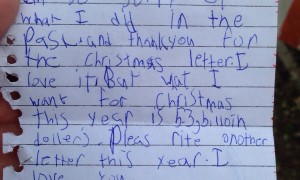 what I did in the
Past. and thankyou for
the christmas letter. I
love it. But wat I
want for christmas
this year is 
dollers. Pleas rite another
letter this year. I
love you